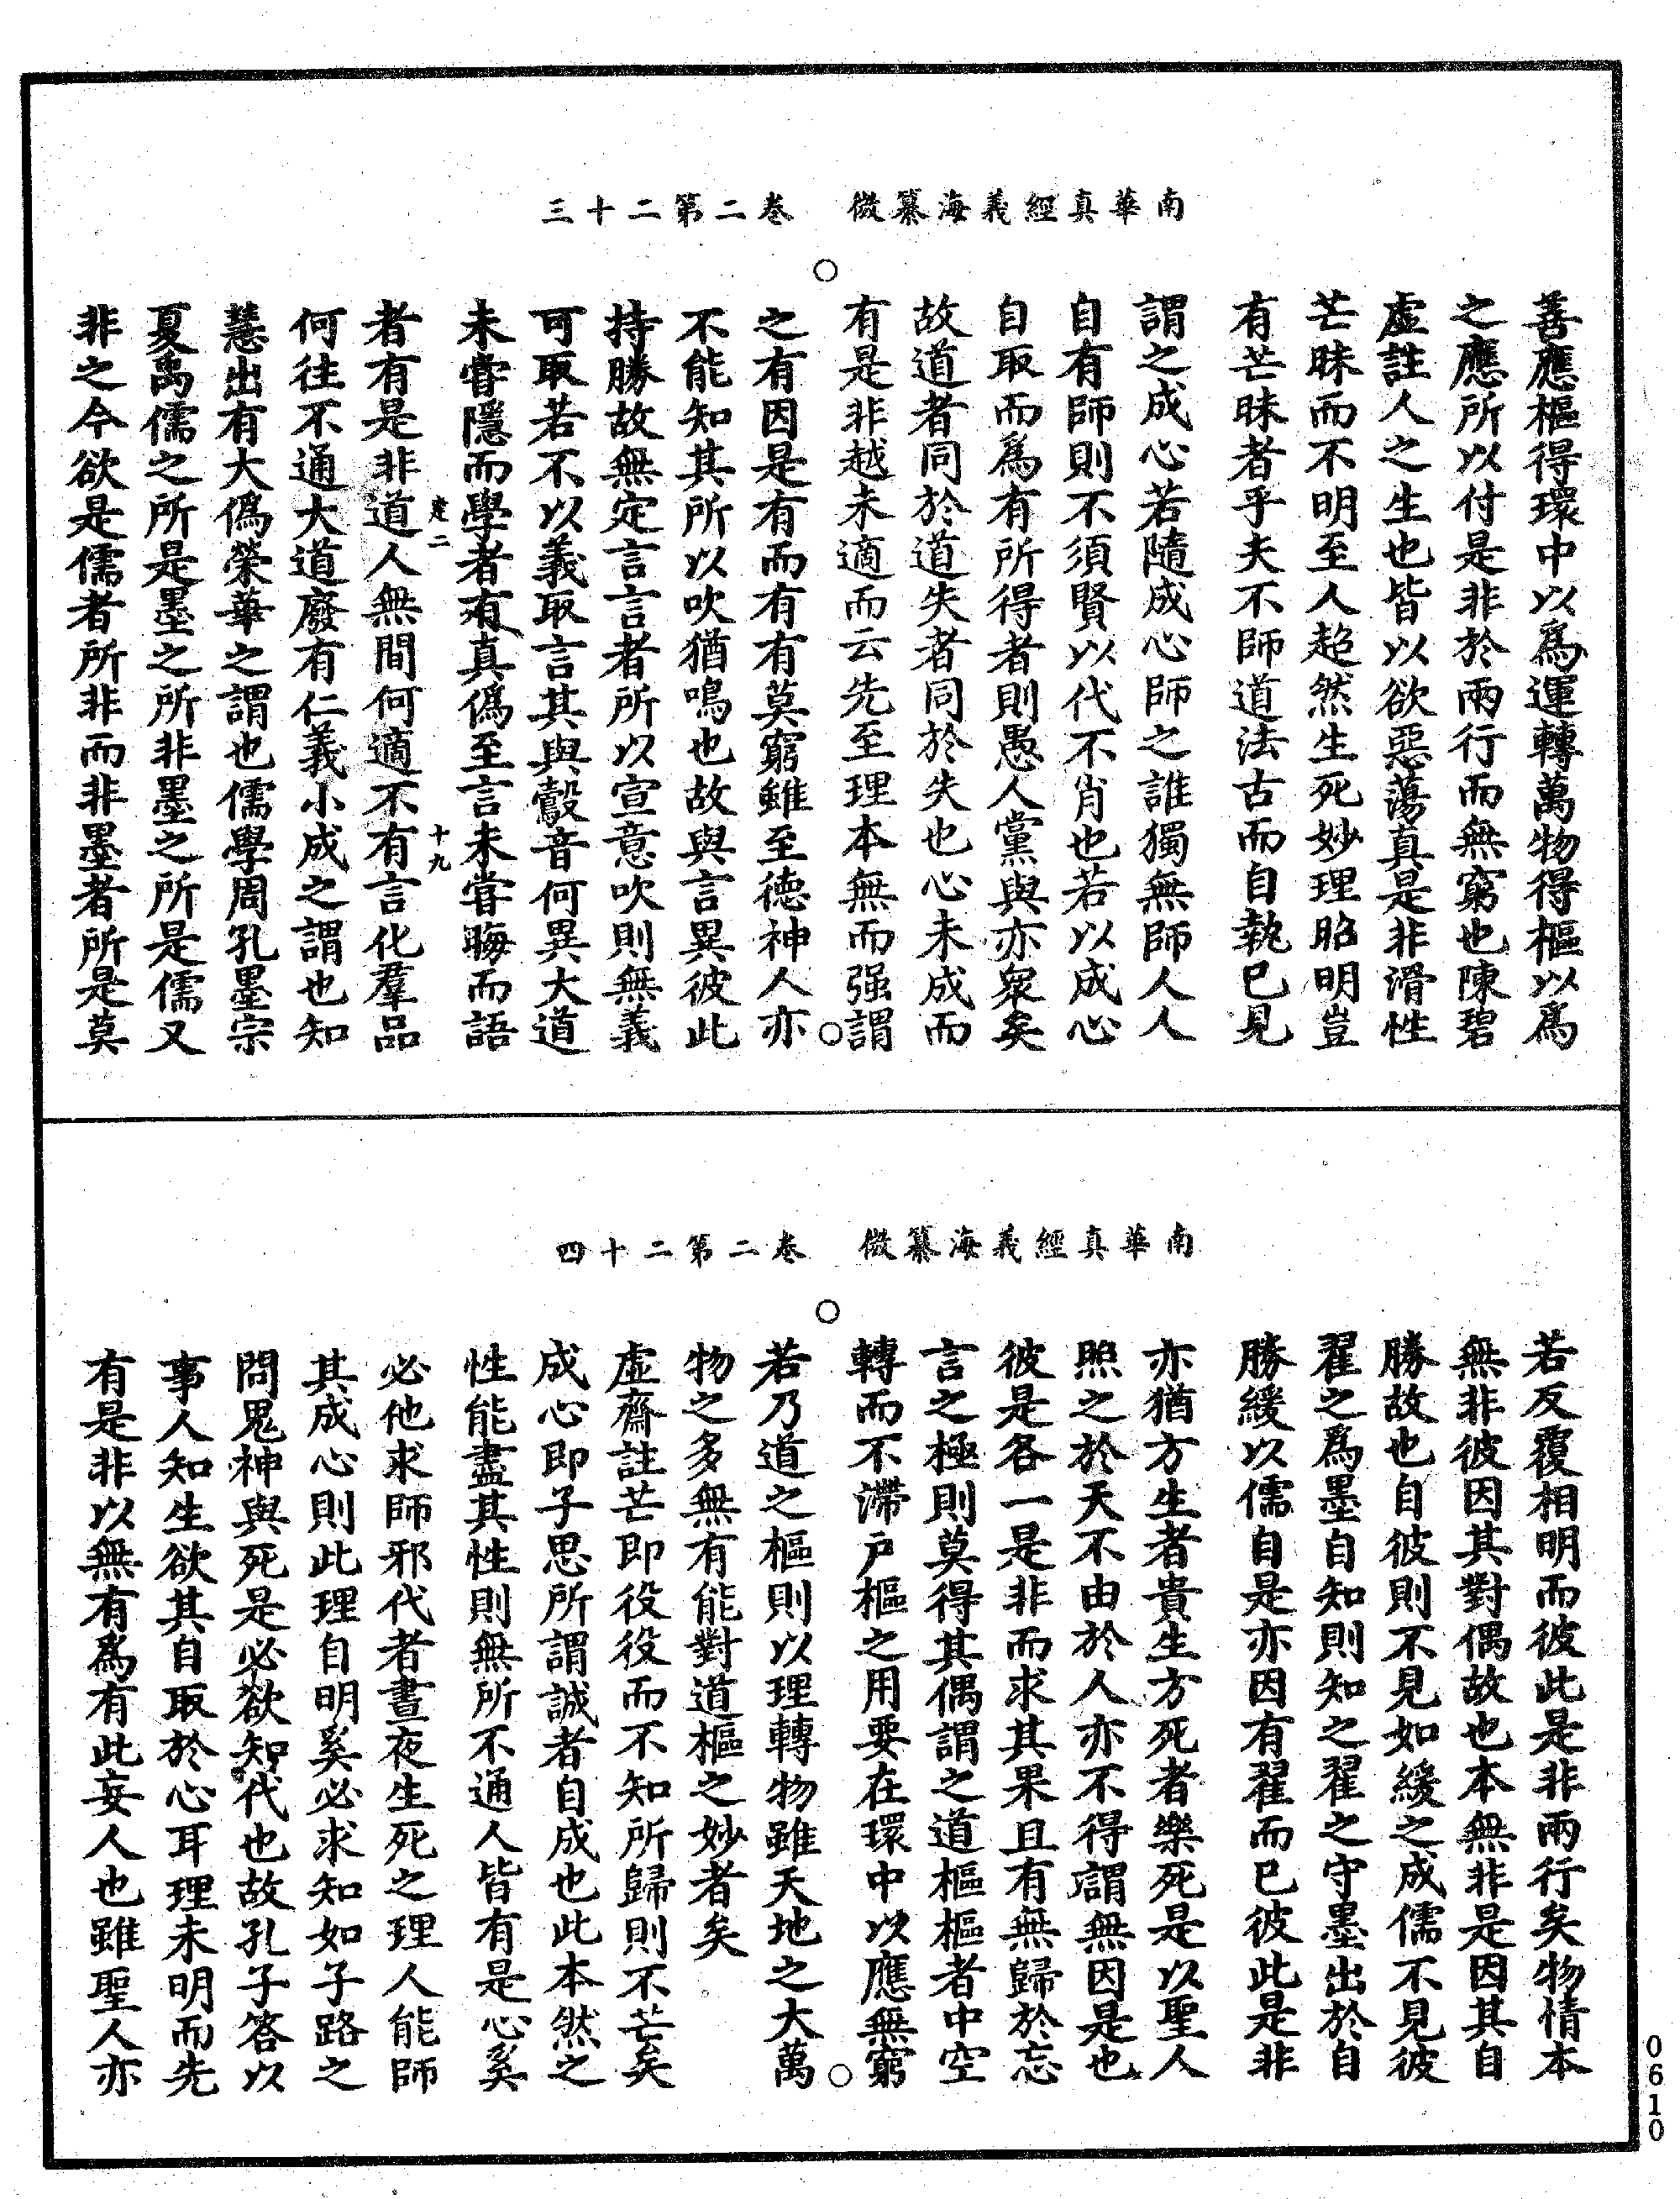 南華真經義海纂微　卷二第二十三
善應樞得環中以為運轉萬物得樞以為
之應所以付是非於兩行而無窮也陳碧
虛註人之生也皆以欲惡蕩真是非滑性
芒昧而不明至人超然生死妙理昭明豈
有芒昧者乎夫不師道法古而自執已見
謂之成心若隨成心師之誰獨無師人人
自有師則不須賢以代不肖也若以成心
自取而為有所得者則愚人黨與亦衆矣
故道者同於道失者同於失也心未成而
有是非越未適而云先至理本無而强謂
之有因是有而有有莫窮雖至德神人亦
不能知其所以吹猶鳴也故與言異彼此
持勝故無定言言者所以宣意吹則無義
可取若不以義取言其與鷇音何異大道
未嘗隱而學者有真偽至言未嘗晦而語
者有是非道人無間何適不有言化羣品
何往不通大道廢有仁義小成之謂也知
慧出有大偽榮華之謂也儒學周孔墨宗
夏禹儒之所是墨之所非墨之所是儒又
非之今欲是儒者所非而非墨者所是莫
南華真經義海纂微　卷二第二十四
若反覆相明而彼此是非兩行矣物情本
無非彼因其對偶故也本無非是因其自
勝故也自彼則不見如緩之成儒不見彼
翟之為墨自知則知之翟之守墨出於自
勝緩以儒自是亦因有翟而已彼此是非
亦猶方生者貴生方死者樂死是以聖人
照之於天不由於人亦不得謂無因是也
彼是各一是非而求其果且有無歸於忘
言之極則莫得其偶謂之道樞樞者中空
轉而不滯戶樞之用要在環中以應無窮
若乃道之樞則以理轉物雖天地之大萬
物之多無有能對道樞之妙者矣
虛齋註芒即役役而不知所歸則不芒矣
成心即子思所謂誠者自成也此本然之
性能盡其性則無所不通人皆有是心奚
必他求師邪代者晝夜生死之理人能師
其成心則此理自明奚必求知如子路之
問鬼神與死是必欲知代也故孔子答以
事人知生欲其自取於心耳理未明而先
有是非以無有為有此妄人也雖聖人亦
0610